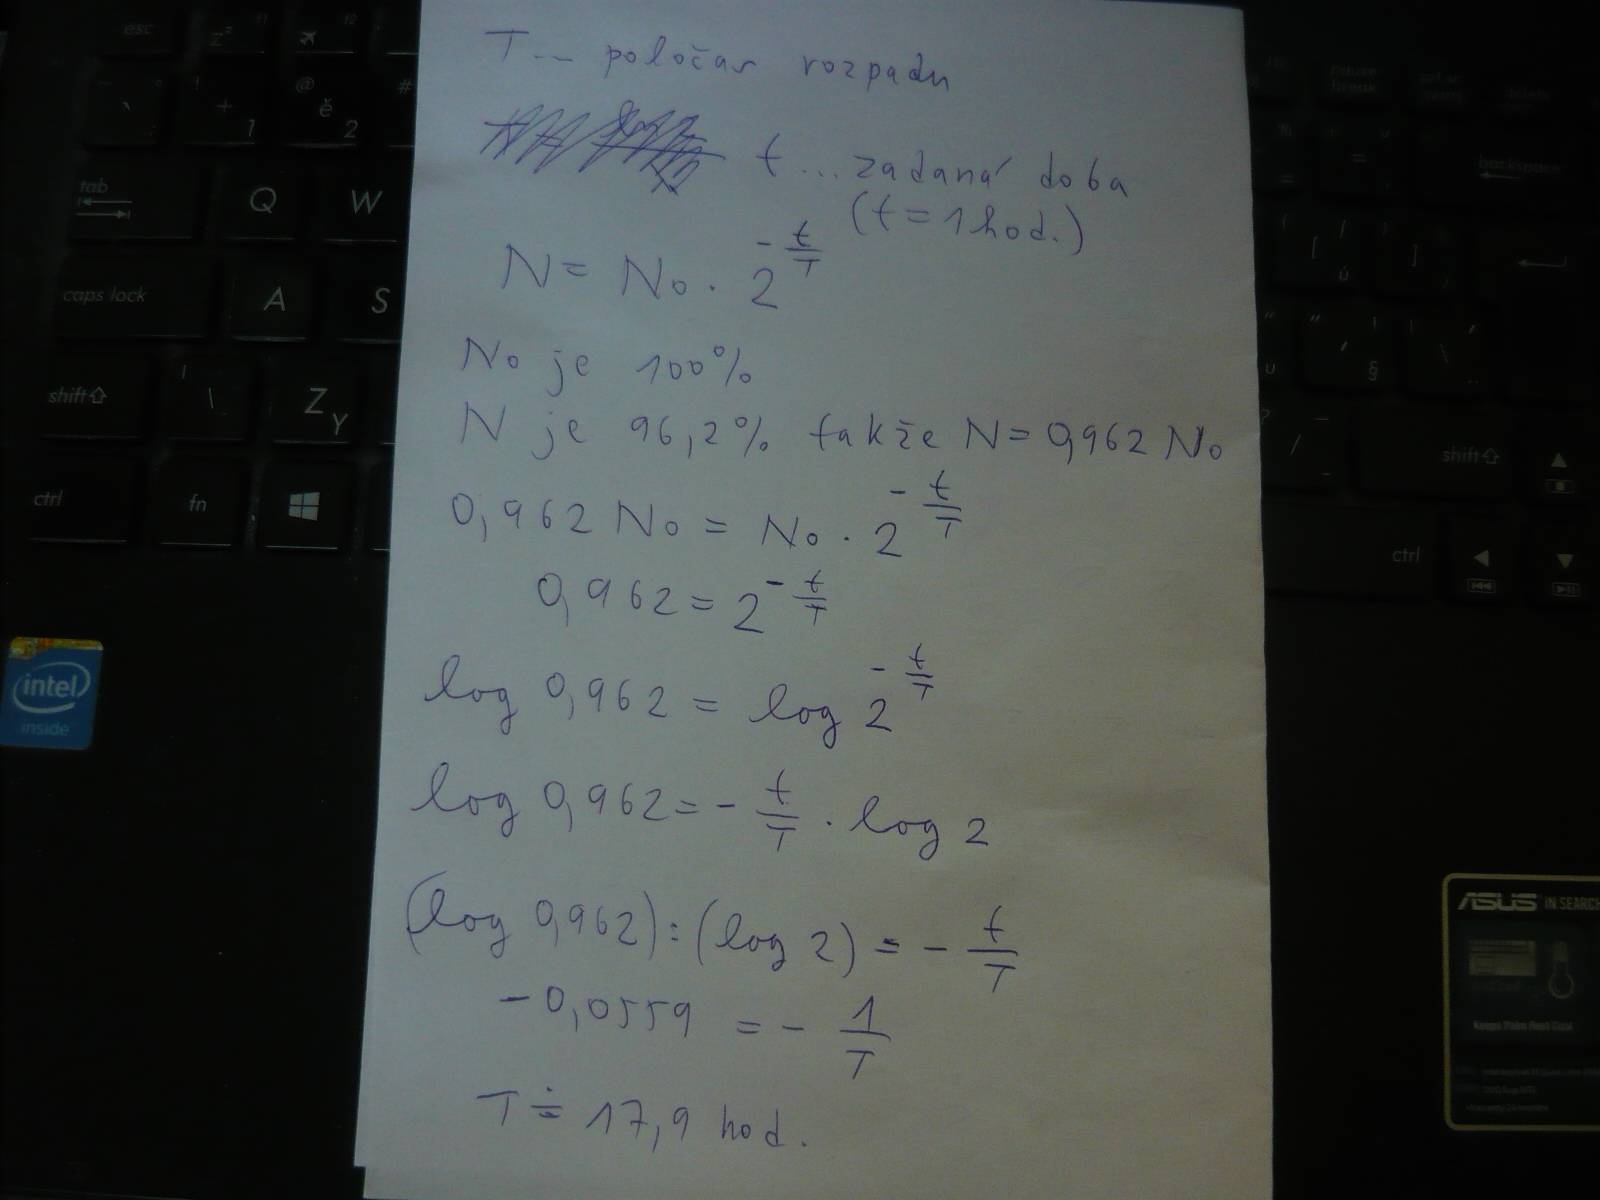 T... poločas rozpadu
t... zadaná doba
(t = 1 hod.)
N = No . 2^(-t/T)
No je 100%
N je 96,2% takže N = 0,962 No
0,962 No = No . 2^(-t/T)
0,962 = 2^(-t/T)
log 0,962 = log 2^(-t/T)
log 0,962 = - t/T . log 2
(log 0,962) : (log 2) = - t/T
-0,0559 = - 1/T
T ≐ 17,9 hod.
esc
tab
Q W
caps lock A S
shift Z Y
ctrl fn
+ 1 @ ě 2 #
backspace
shift
ctrl
intel
inside
ASUS IN SEARCH